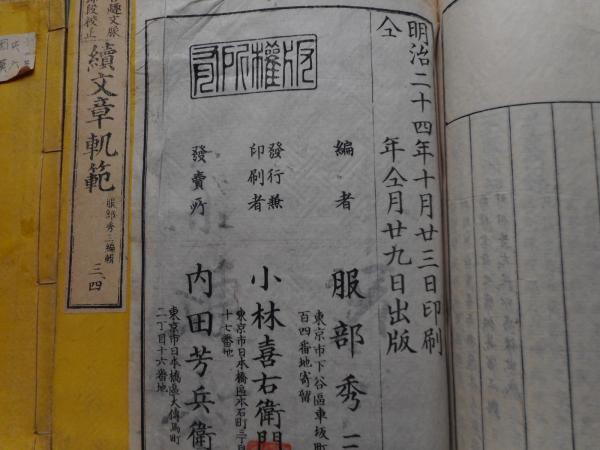 明治二十四年十月廿三日印刷
仝年仝月廿九日出版
版權所有
編者
服部秀三
東京市下谷區車坂町
百四番地寄留
發行兼
印刷者
小林喜右衛門
東京市日本橋區本石町三丁目
十七番地
發賣所
内田芳兵衛
東京市日本橋區大傳馬町
二丁目十六番地
續文章軌範
服部秀三編輯
三、四